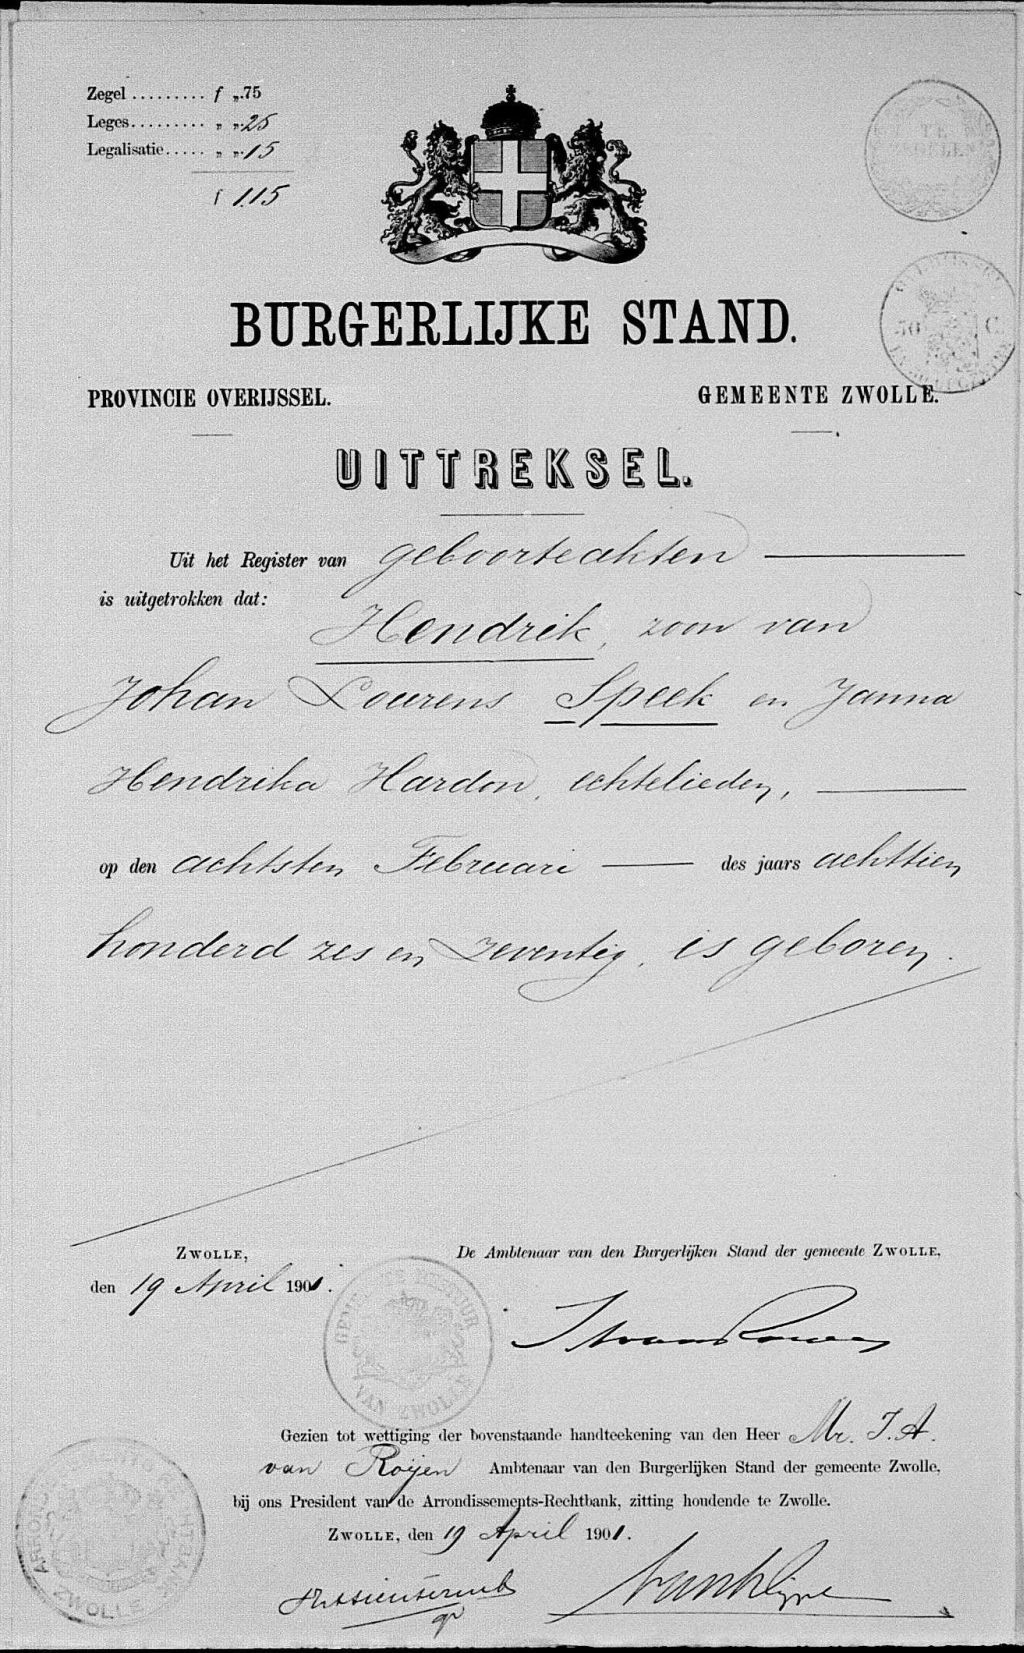 Zegel ......... f „.75
Leges......... „ „.25
Legalisatie..... „ „.15
f 1.15
TE
ZWOLLE
OVERIJSSEL
50 C.
BURGERLIJKE STAND.
PROVINCIE OVERIJSSEL.
GEMEENTE ZWOLLE.
UITTREKSEL.
Uit het Register van geboorteakten
is uitgetrokken dat:
Hendrik, zoon van
Johan Lourens Speek en Janna
Hendrika Hardon, echtelieden,
op den achtsten Februari des jaars achttien
honderd zes en zeventig, is geboren.
ZWOLLE,
De Ambtenaar van den Burgerlijken Stand der gemeente ZWOLLE,
den 19 April 1901.
GEMEENTE BESTUUR
VAN ZWOLLE
Gezien tot wettiging der bovenstaande handteekening van den Heer Mr. I. A.
van Roijen Ambtenaar van den Burgerlijken Stand der gemeente Zwolle,
bij ons President van de Arrondissements-Rechtbank, zitting houdende te Zwolle.
ZWOLLE, den 19 April 1901.
ARRONDISSEMENTS RECHTBANK
ZWOLLE